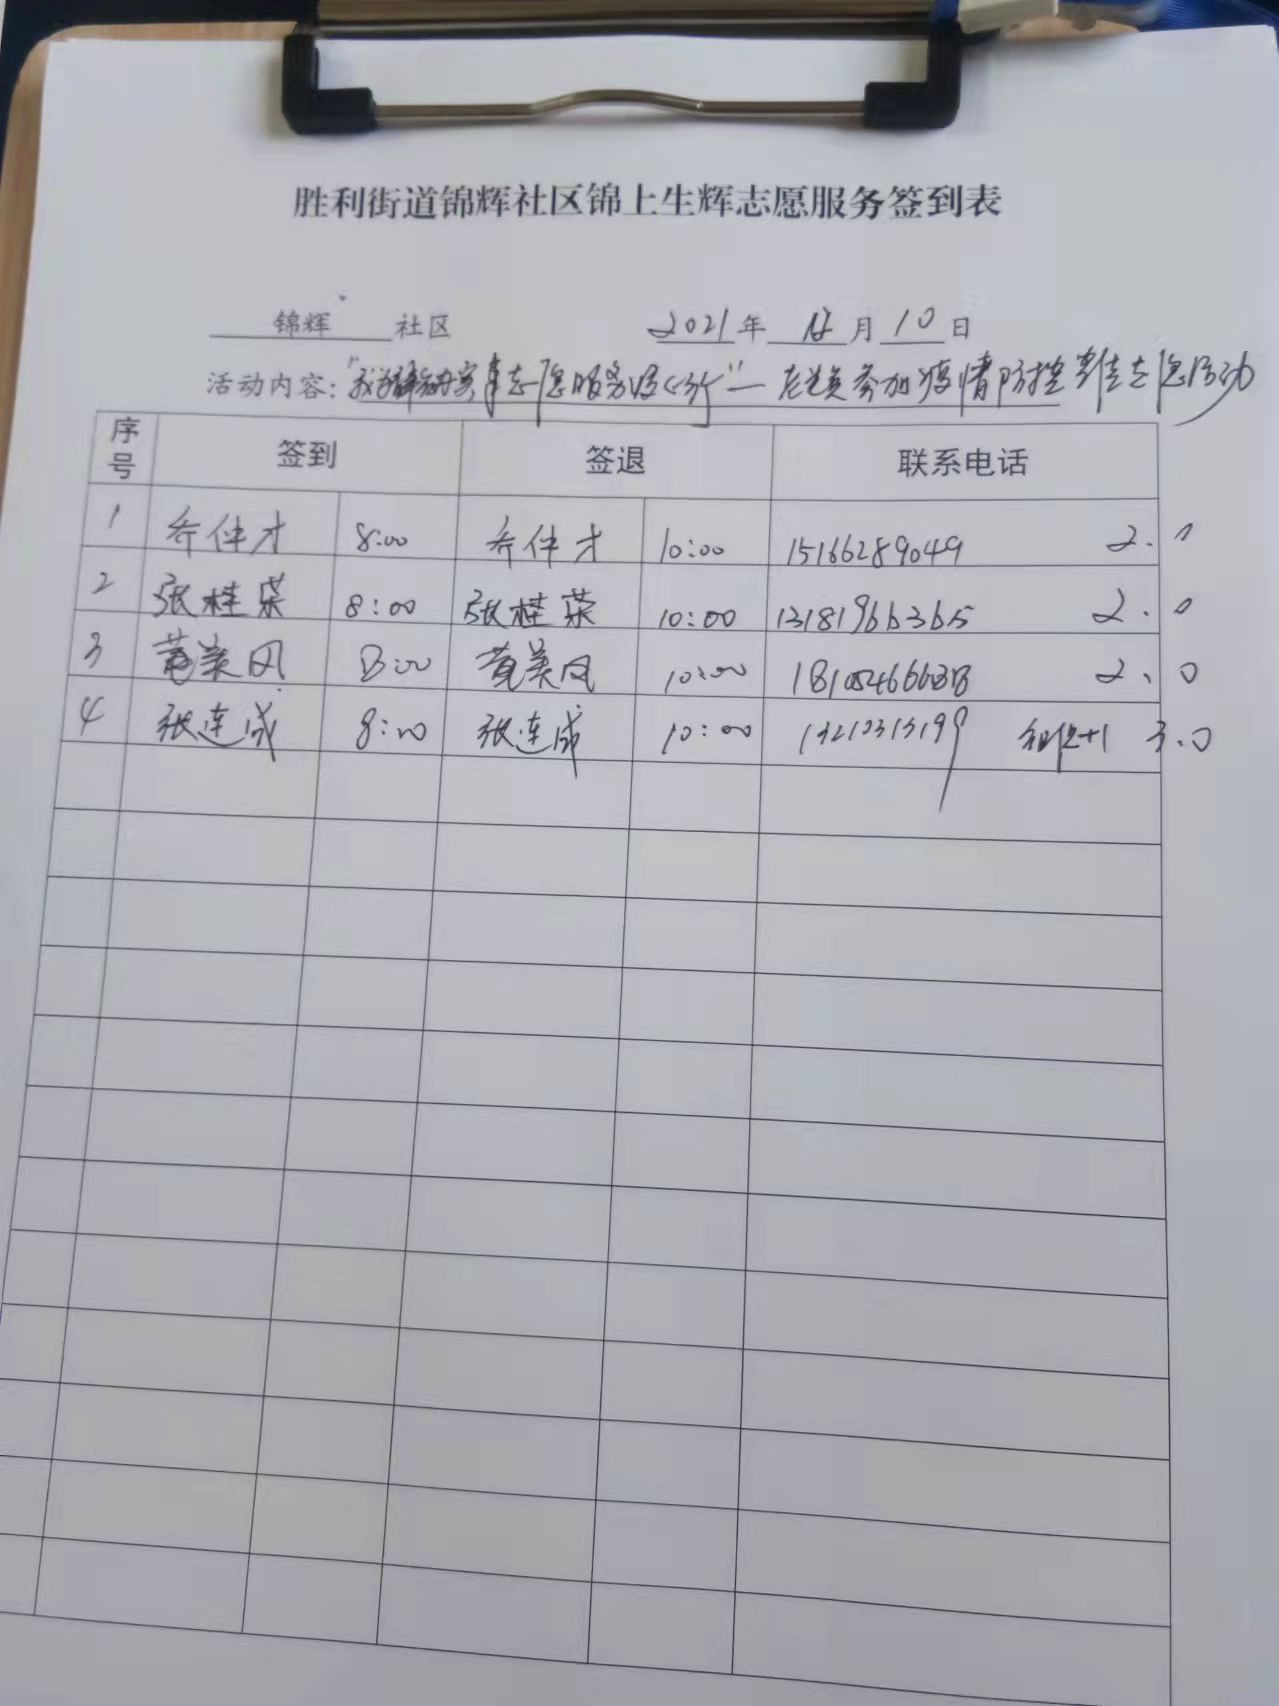 胜利街道锦辉社区锦上生辉志愿服务签到表
锦辉 社区 2021年 12月10日
活动内容："我为群众办实事志愿服务 "— 老党员参加疫情防控 志愿活动
序号 签到 签退 联系电话
1 乔仲才 8:00 乔仲才 10:00 15166289049 2.0
2 张桂荣 8:00 张桂荣 10:00 13181966365 2.0
3 美凤 8:00 美凤 10:00 2.0
4 张连成 8:00 张连成 10:00 13210313199 组织+1 3.0